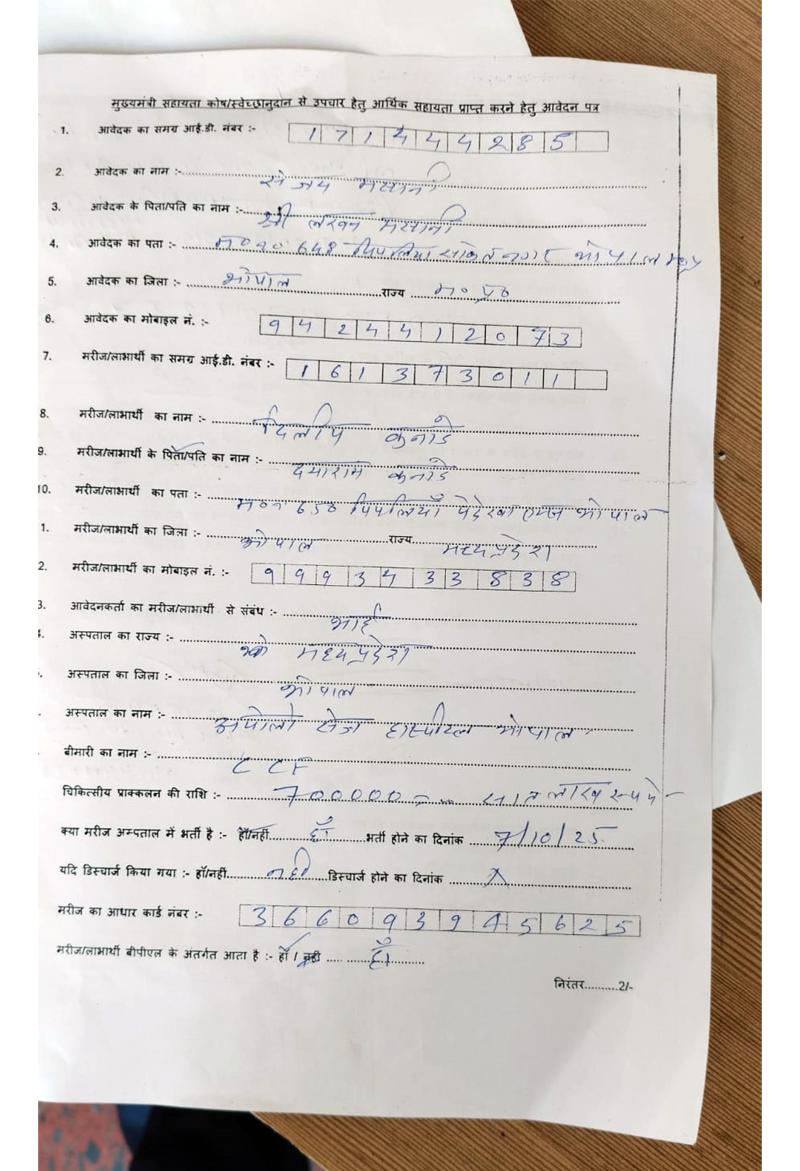 मुख्यमंत्री सहायता कोष/स्वेच्छानुदान से उपचार हेतु आर्थिक सहायता प्राप्त करने हेतु आवेदन पत्र
1. आवेदक का समग्र आई.डी. नंबर :- 171444285
2. आवेदक का नाम :- संजय मसानी
3. आवेदक के पिता/पति का नाम :- श्री लखन मसानी
4. आवेदक का पता :- म०न० 648 पिपलिया साकेत नगर भोपाल मप्र
5. आवेदक का जिला :- भोपाल राज्य म० प्र०
6. आवेदक का मोबाइल नं. :- 9424412073
7. मरीज/लाभार्थी का समग्र आई.डी. नंबर :- 161373011
8. मरीज/लाभार्थी का नाम :- दिलीप कनाडे
9. मरीज/लाभार्थी के पिता/पति का नाम :- दयाराम कनाडे
10. मरीज/लाभार्थी का पता :- म०न० 650 पिपलियाँ पेंदेखा एम्स भोपाल
1. मरीज/लाभार्थी का जिला :- भोपाल राज्य मध्यप्रदेश
2. मरीज/लाभार्थी का मोबाइल नं. :- 9993433838
3. आवेदनकर्ता का मरीज/लाभार्थी से संबंध :- भाई
अस्पताल का राज्य :- मध्यप्रदेश
अस्पताल का जिला :- भोपाल
अस्पताल का नाम :- अपोलो सेज हास्पीटल भोपाल
बीमारी का नाम :- CCF
चिकित्सीय प्राक्कलन की राशि :- 700000 सात लाख रूपये
क्या मरीज अस्पताल में भर्ती है :- हॉ/नहीं हाँ भर्ती होने का दिनांक 7/10/25
यदि डिस्चार्ज किया गया :- हॉ/नहीं नही डिस्चार्ज होने का दिनांक X
मरीज का आधार कार्ड नंबर :- 366093945625
मरीज/लाभार्थी बीपीएल के अंतर्गत आता है :- हॉ / नहीं हाँ
निरंतर..........2/-